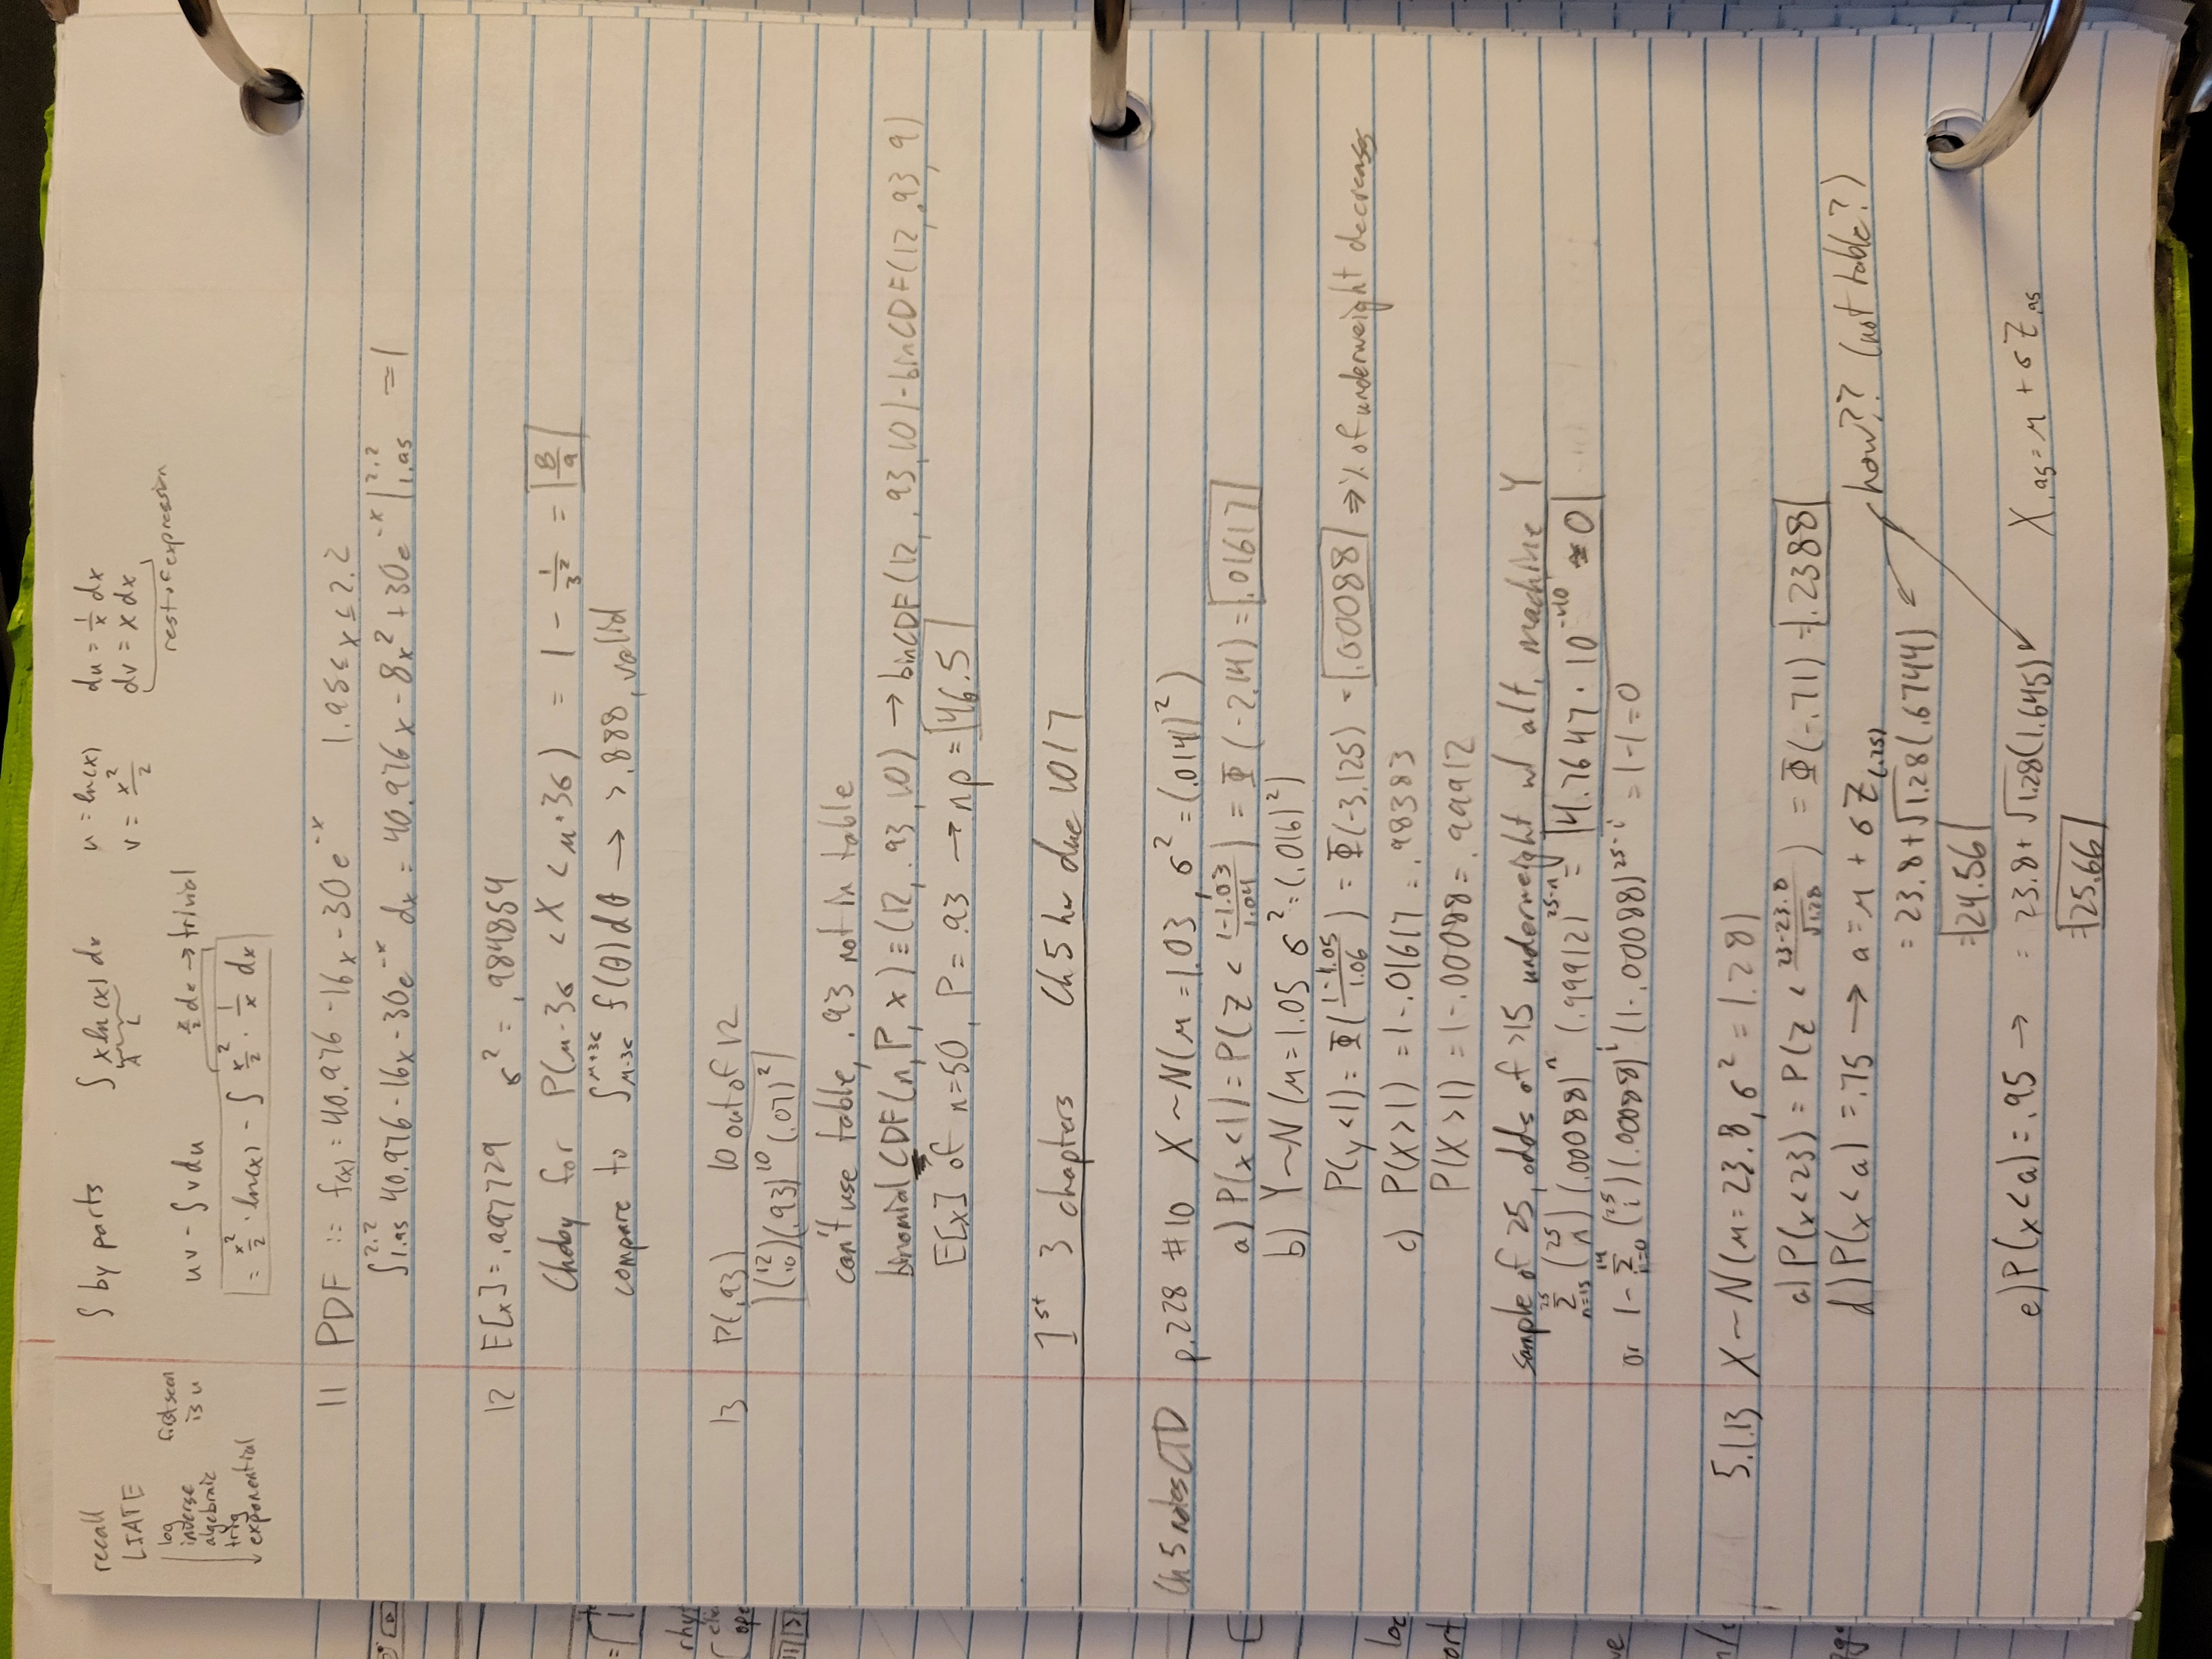 recall
LIATE
log
inverse
algebraic
trig
exponential
first seen
is u
∫ by parts ∫ x ln(x) dx u = ln(x) du = 1/x dx
A L v = x²/2 dv = x dx
rest of expression
uv - ∫ v du x/2 dx → trivial
= x²/2 · ln(x) - ∫ x²/2 · 1/x dx
11 PDF := f(x) = 40.976 - 16x - 30e^-x 1.95 ≤ x ≤ 2.2
∫_1.95^2.2 40.976 - 16x - 30e^-x dx = 40.976x - 8x² + 30e^-x |_1.95^2.2 = 1
12 E[x] = .997729 σ² = .984854
Cheby for P(μ-3σ < X < μ+3σ) = 1 - 1/3² = 8/9
compare to ∫_μ-3σ^μ+3σ f(θ)dθ → >.888, valid
13 P(.93) 10 out of 12
(12 10)(.93)^10 (.07)^2
can't use table, .93 not in table
binomial CDF(n, P, x) ≡ (12, .93, 10) → binCDF(12, .93, 10) - binCDF(12, .93, 9)
E[x] of n=50, P = .93 → np = 46.5
1st 3 chapters Ch 5 hw due 10/7
Ch 5 notes CTD p.228 #10 X ~ N(μ = 1.03, σ² = (.014)²)
a) P(x<1) = P(Z < (1-1.03)/1.04) = Φ(-2.14) = .01617
b) Y ~ N(μ = 1.05 σ² = (.016)²)
P(y<1) = Φ((1-1.05)/1.06) = Φ(-3.125) = .00088 ⇒ % of underweight decreases
c) P(X>1) = 1-.01617 = .98383
P(X>1) = 1-.00088 = .99912
sample of 25, odds of >15 underweight w/ alt. machine Y
Σ_n=15^25 (25 n)(.00088)^n (.99912)^25-n = 4.7647 · 10^-40 ≈ 0
or 1 - Σ_i=0^14 (25 i)(.00088)^i (1-.00088)^25-i = 1-1=0
5.1.13 X ~ N(μ = 23.8, σ² = 1.28)
a) P(x<23) = P(Z < (23-23.8)/√1.28) = Φ(-.71) = .2388
d) P(x<a) = .75 → a = μ + σZ(.25) how?? (not table?)
= 23.8 + √1.28(.6744)
= 24.56
e) P(x<a) = .95 → = 23.8 + √1.28(1.645) X.95 = μ + σZ.95
= 25.66